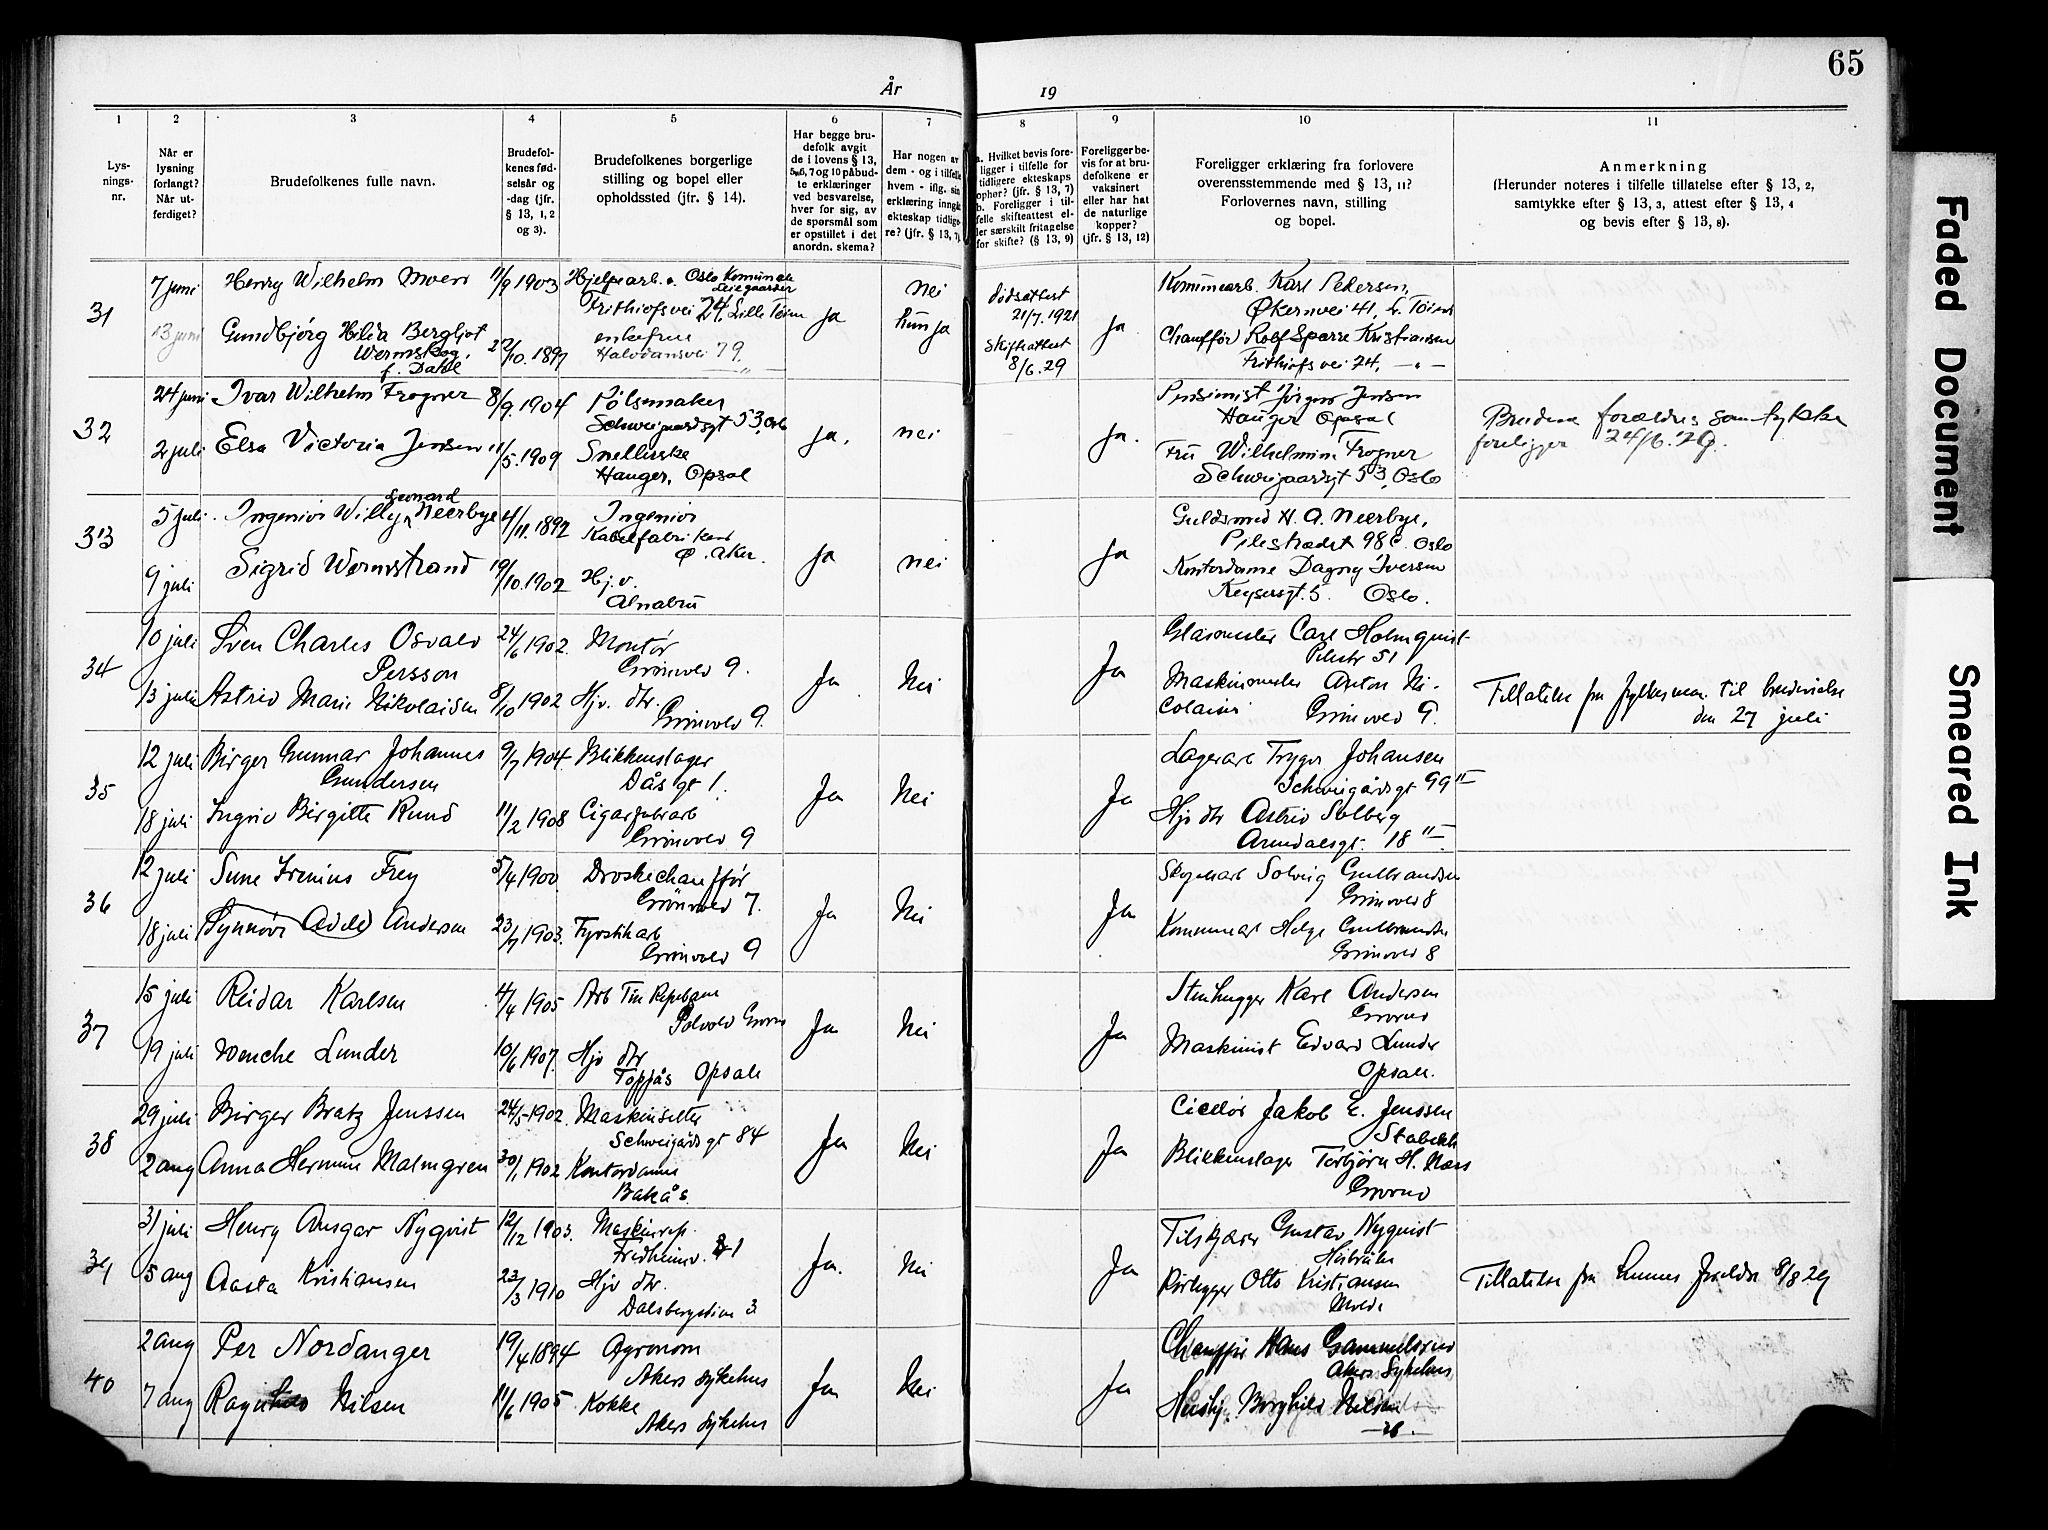 65
År 19
1 2 3 4 5 6 7 8 9 10 11
Lys-
nings-
nr.
Når er
lysning
forlangt?
Når ut-
ferdiget?
Brudefolkenes fulle navn.
Brudefol-
kenes fød-
selsår og
-dag (jfr.
§ 13, 1, 2
og 3).
Brudefolkenes borgerlige
stilling og bopel eller
opholdssted (jfr. § 14).
Har begge bru-
defolk avgit
de i lovens § 13,
5, 6, 7 og 10 påbud-
te erklæringer
ved besvarelse,
hver for sig, av
de spørsmål som
er opstillet i det
anordn. skema?
Har nogen av
dem - og i tilfelle
hvem - iflg. sin
erklæring inngåt
ekteskap tidlige-
re? (jfr. § 13, 7)
a. Hvilket bevis fore-
ligger i tilfelle for
tidligere ekteskaps
ophør? (jfr. § 13, 7)
b. Foreligger i til-
felle skifteattest el-
ler særskilt fritagelse
for skifte? (§ 13, 9)
Foreligger be-
vis for at bru-
defolkene er
vaksinert
eller har hat
de naturlige
kopper?
(jfr. § 13, 12)
Foreligger erklæring fra forlovere
overensstemmende med § 13, 11?
Forlovernes navn, stilling
og bopel.
Anmerkning
(Herunder noteres i tilfelle tillatelse efter § 13, 2,
samtykke efter § 13, 3, attest efter § 13, 4
og bevis efter § 13, 8).
31
7 juni
13 juni
Henry Wilhelm Moen
Gundbjörg Hilda Bergljot
Wermskog,
f. Dahl
11/9 1903
22/10. 1897
Hjelpearb. v. Oslo Kommunale
Leiegaarder
Frithiofsvei 24, Lille Töien
enkefrue
Halvdansvei 79.
ja
nei
hun ja
dødsattest
21/7. 1921
skifteattest
8/6. 29
ja
Kommunearb. Karl Pedersen,
Økernvei 41, L. Töien
Chauffør Rolf Sparre Kristiansen
Frithiofsvei 24, - " -
32
24 juni
2 juli
Ivar Wilhelm Frogner
Elsa Victoria Jensen
8/9. 1904
11/5. 1909
Pølsemaker
Schweigaardsgt 53, Oslo
Hauger, Opsal
ja.
nei
ja.
Jensen
Hauger Opsal
Fru Wilhelmine Frogner
Schweigaardsgt 53, Oslo
Brudens forældres samtykke
foreligger 24/6. 29.
33
5 juli.
9 juli
Ingeniør Willy Leonard Neerbye
Sigrid Wermstrand
4/11. 1892
19/10. 1902
Ingeniør
Kabelfabrikken
Ø. Aker.
Hj. v.
Alnabru
ja
nei
ja
Guldsmed H. A. Neerbye,
Pilestrædet 98 C. Oslo
Kontordame Dagny Iversen
Keysersgt. 5. Oslo.
34
10 juli
13 juli
Sven Charles Osvald
Persson
Astrid Marie Nikolaisen
24/6 1902.
8/10 1902
Montør
Grønvold 9.
Hjv. dtr.
Grønvold 9.
Ja
Nei
Ja
Glasmester Carl Holmquist
Pilestr 51
Maskinmester Anton Ni-
colaisen Grønvold 9.
Tillatelse fra fylkesmann. til brudevielse
den 27 juli
35
12 juli
18 juli
Birger Gunnar Johannes
Gundersen
Ingrid Birgitte Ruud
9/7 1904.
11/2 1908
Blikkenslager
Dåsgt 1.
Cigarfabrarb
Grønvold 9
Ja
Nei
Ja
Lagerarb Trygve Johansen
Schweigårdsgt 99 II
Hjv dtr Astrid Solberg
Arendalsgt. 18 II
36
12 juli
18 juli
Sune Irenius Frey
Synnøve Advild Andersen
5/4 1900
23/7 1903.
Droskechauffør
Grönvold 7.
Fyrstikkarb
Grönvold 9
Ja
Nei
Ja
Solveig Gulbrandsen
Grönvold 8
Kommunearb Helge Gulbrandsen
Grönvold 8
37
15 juli
19 juli
Reidar Karlsen
Wenche Lunder
4/4 1905
10/6 1907.
Arb
Grorud
Hjv dtr
Topås Opsal
Ja
Nei
Ja
Stenhugger Karl Andersen
Grorud
Maskinist Edvard Lunder
Opsal.
38
29 juli
2 aug
Birger Bratz Jenssen
Anna Hermine Malmgren
24/5 1902.
30/1 1902
Maskinsetter
Schweigårdsgt 84
Kontordame
Bakås
Ja
Nei
Ja
Jakob E. Jenssen
Stabekk
Blikkenslager Torbjørn H. Næss
Grorud
39
31 juli
5 aug
Henry Ansgar Nyqvist
Aasta Kristiansen
12/12 1903.
23/3 1910
Maskinrep.
Fredheimv. 1
Hjv dtr.
Dalsbergstien 3
Ja.
Nei
Ja
Tilskjærer Gustav Nyquist
Rørlegger Otto Kristiansen
Molde
Tillatelse fra hennes foreldre 8/8 29
40
2 aug
7 aug
Per Nordanger
Ragnhild Nilsen
19/4 1894
11/6 1905
Agronom
Akers sykehus
Kokke
Akers sykehus
Ja
Nei
Ja
Chauffør Hans Gammelsrud
Akers Sykehus
Hushj. Borghild Nilsen
Faded Document
Smeared Ink